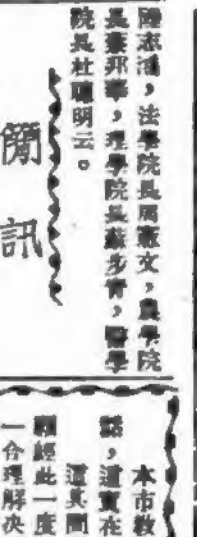 陸志鴻，法學院長周憲文，農學院
長蔡邦華，理學院長蘇步青，醫學
院長杜聰明云。
簡訊
本市教
話，這實在
這其間
經此一度
一合理解決